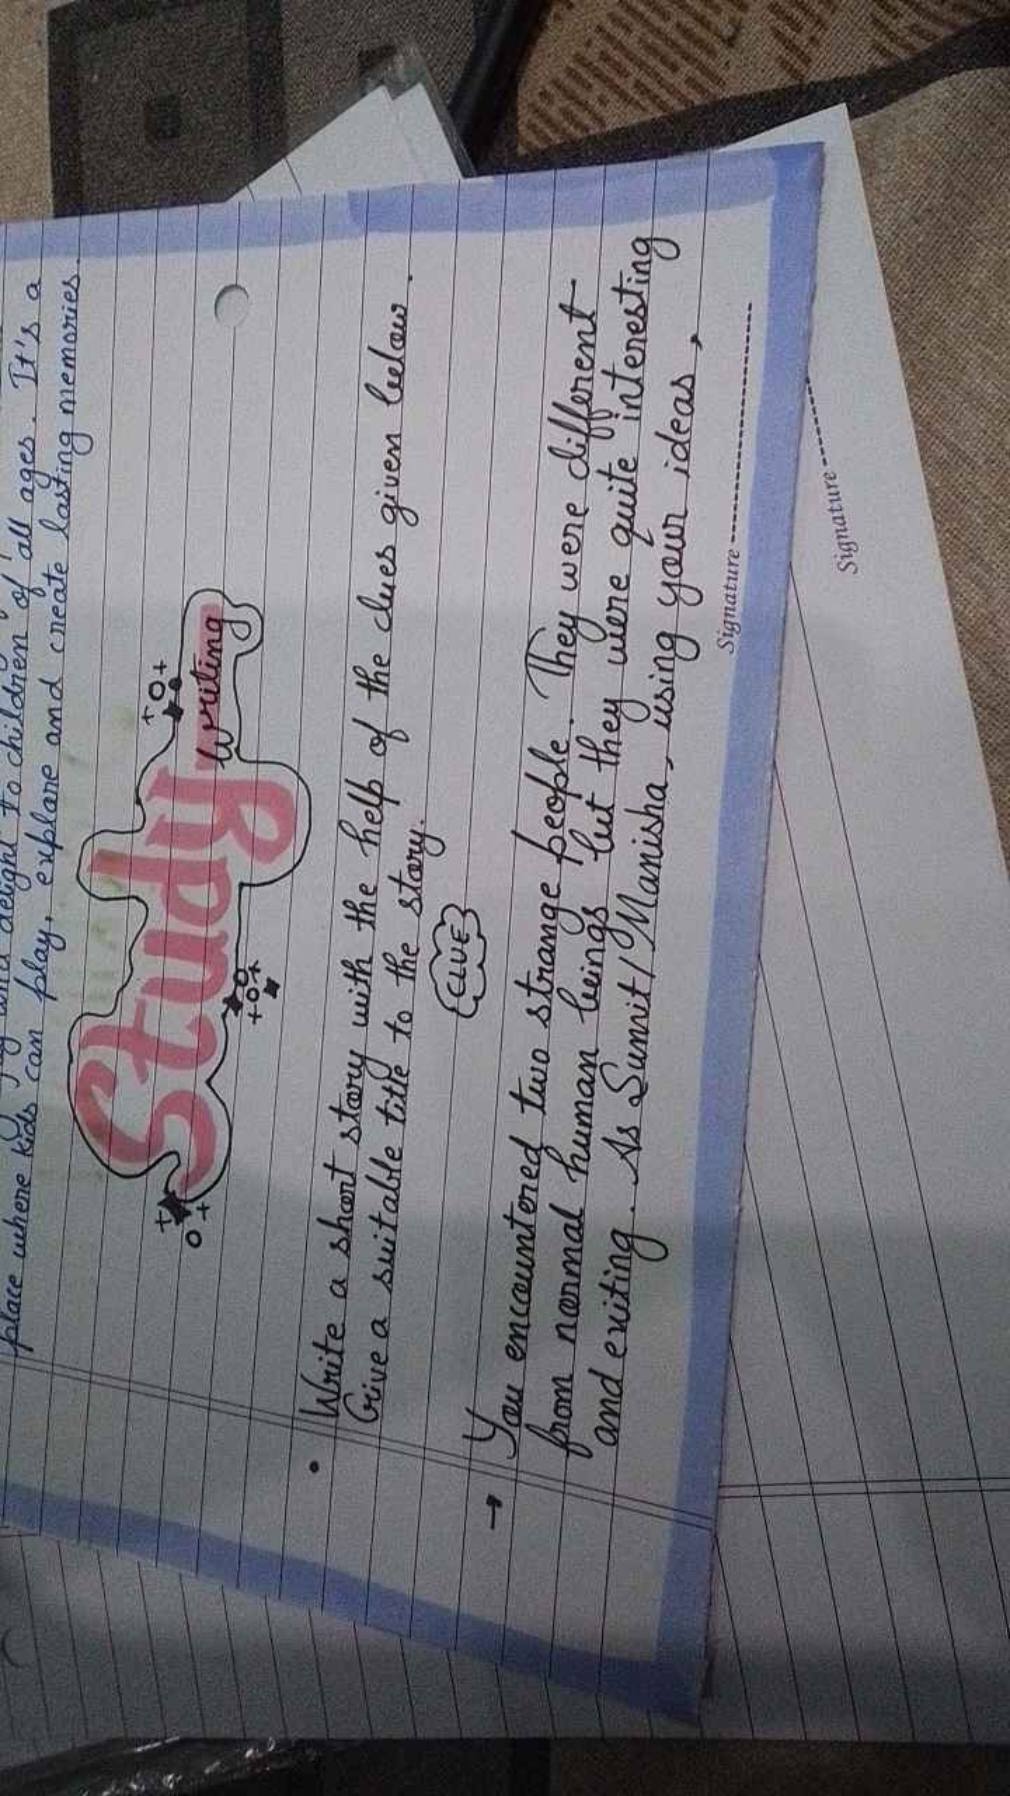 place where kids can play, explore and create lasting memories.
delight to children of all ages. It's a
Study
Writing
• Write a short story with the help of the clues given below.
Give a suitable title to the story.
CLUE
→ You encountered two strange people. They were different
from normal human beings but they were quite interesting
and exiting. As Sumit/Manisha, using your ideas,
Signature
Signature